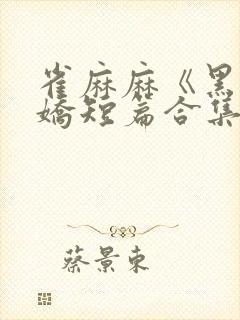 雀麻麻《黑
嬌短篇合集
蔡景東